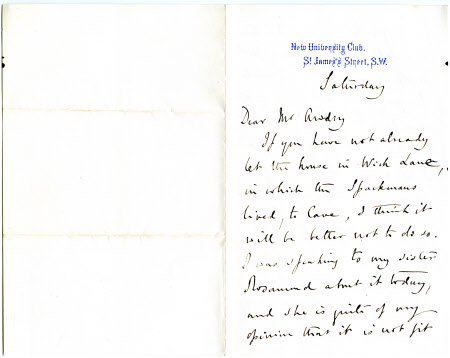 New University Club.
St James's Street, S.W.
Saturday
Dear Mr Awdry
If you have not already
let the house in Wick Lane,
in which the Spackmans
lived, to Cave, I think it
will be better not to do so.
I was speaking to my sister
Rosamond about it today,
and she is quite of my
opinion that it is not fit